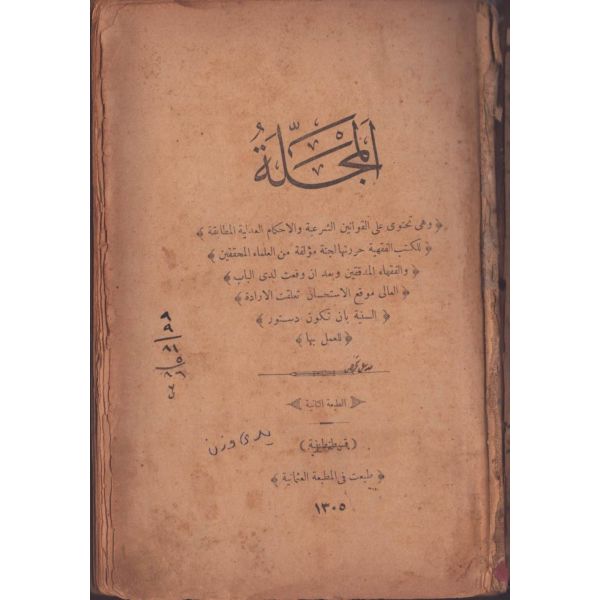 المَجَلَّةُ
﴿ وهى تحتوى على القوانين الشرعية والاحكام العدلية المطابقة ﴾
﴿ للكتب الفقهية حررتها لجنة مؤلفة من العلماء المحققين ﴾
﴿ والفقهاء المدققين وبعد ان وقعت لدى الباب ﴾
﴿ العالى موقع الاستحسان تعلقت الارادة ﴾
﴿ السنية بان تكون دستور ﴾
﴿ للعمل بها ﴾
الطبعة الثانية
( قسطنطينية )
﴿ طبعت فى المطبعة العثمانية ﴾
١٣٠٥